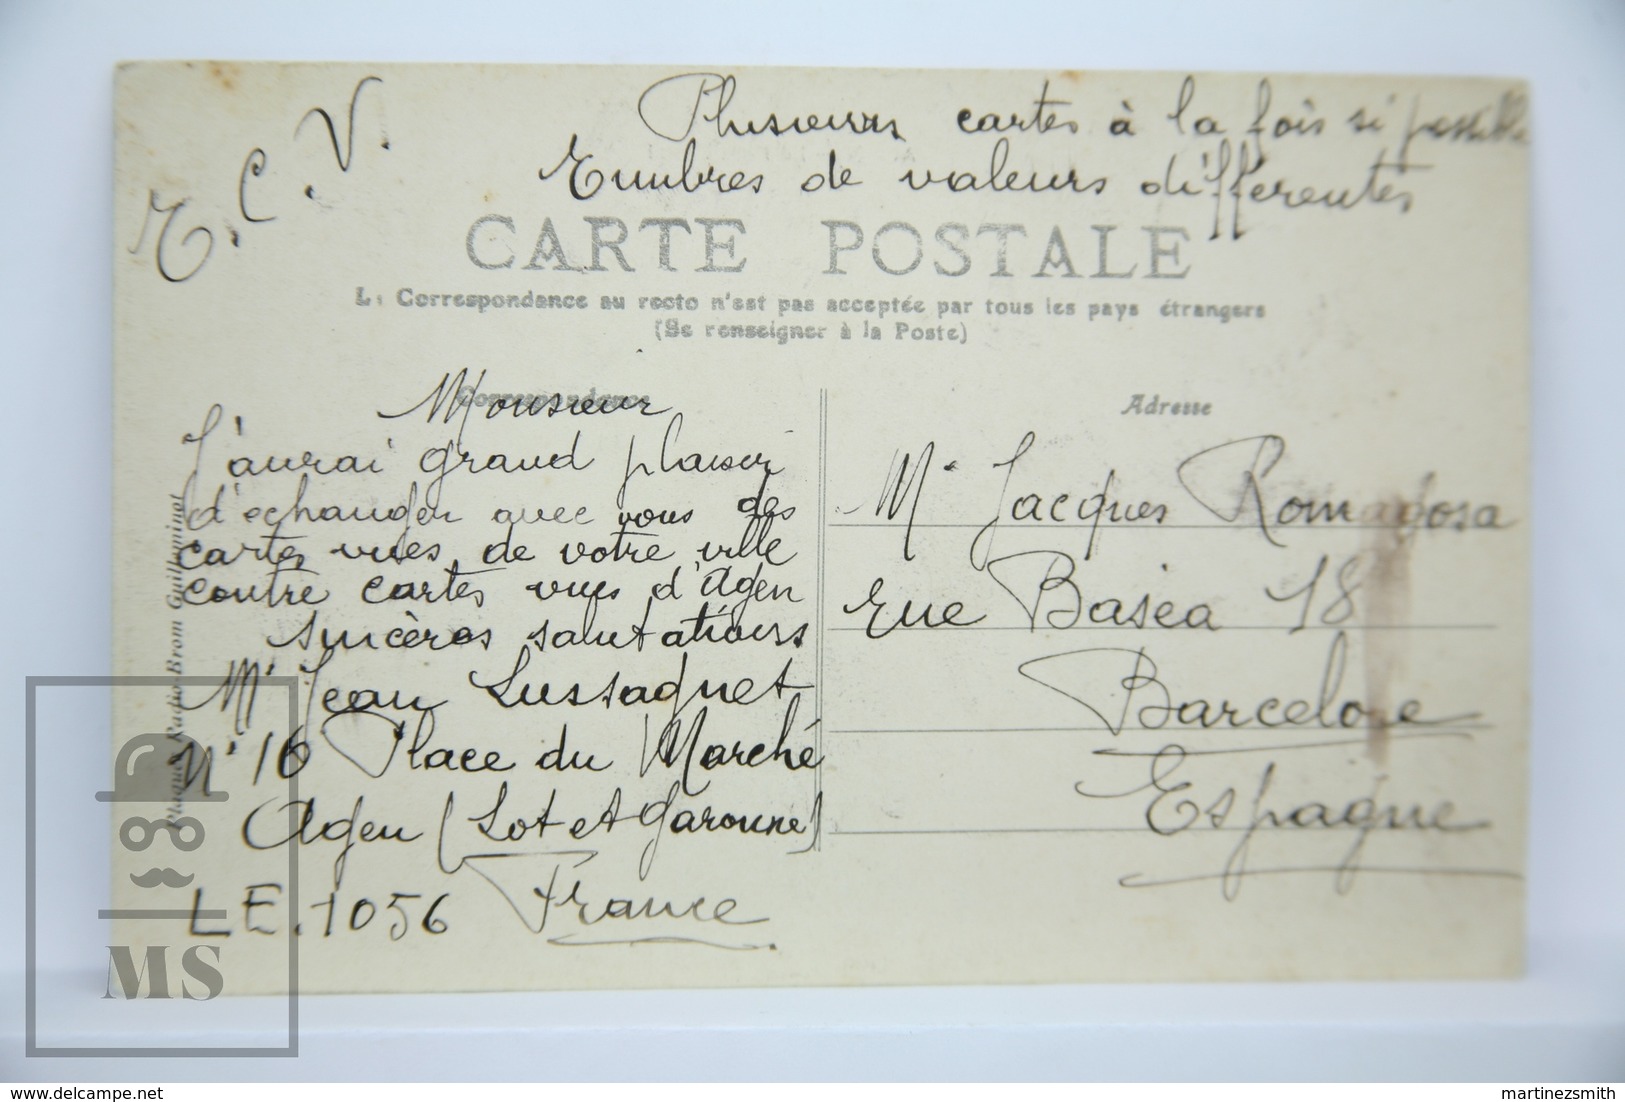 T.C.V.
Plusieurs cartes à la fois si possible
Timbres de valeurs différentes
CARTE POSTALE
La Correspondance au recto n'est pas acceptée par tous les pays étrangers
(Se renseigner à la Poste)
Correspondance
Adresse
Monsieur
J'aurai grand plaisir
d'echanger avec vous des
cartes vues de votre ville
contre cartes vues d'Agen
Sincères salutations
Mr Jean Lussagnet
N° 16 Place du Marché
Agen (Lot et Garonne)
France
LE.1056
Mr Jacques Romagosa
rue Basea 18
Barcelone
Espagne
Plaque Radio-Brom Guilleminot
MS
delcampe.net
martinezsmith